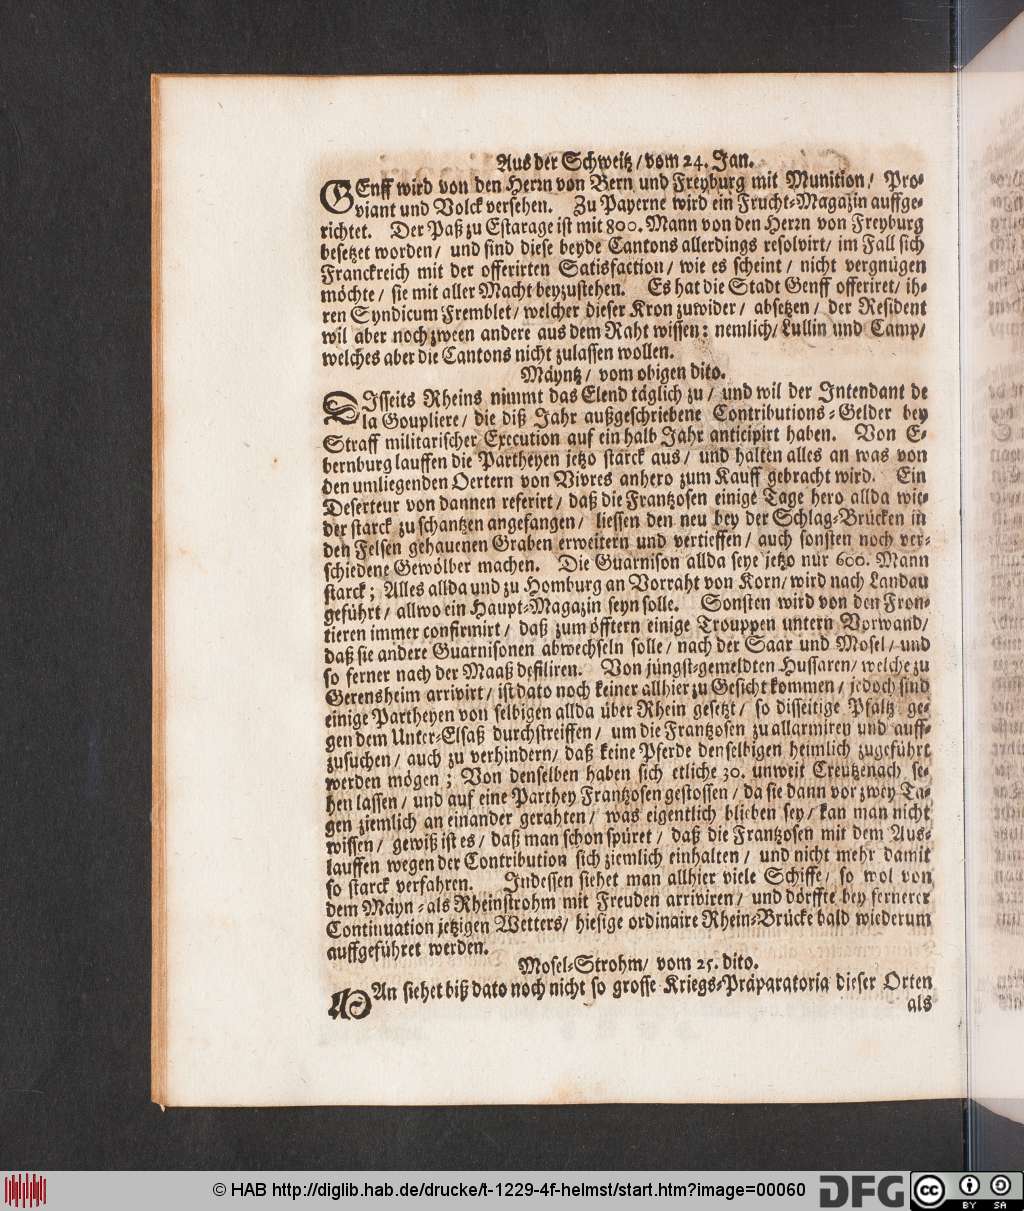 Aus der Schweitz / vom 24. Jan.
GEnff wird von den Herrn von Bern und Freyburg mit Munition / Pro-
viant und Volck versehen. Zu Payerne wird ein Frucht-Magazin auffge-
richtet. Der Paß zu Estarage ist mit 800. Mann von den Herrn von Freyburg
besetzet worden / und sind diese beyde Cantons allerdings resolvirt / im Fall sich
Franckreich mit der offerirten Satisfaction / wie es scheint / nicht vergnügen
möchte / sie mit aller Macht beyzustehen. Es hat die Stadt Genff offeriret / ih-
ren Syndicum Fremblet / welcher dieser Kron zuwider / absetzen / der Resident
wil aber noch zween andere aus dem Raht wissen: nemlich / Lullin und Camp /
welches aber die Cantons nicht zulassen wollen.
Mäyntz / vom obigen dito.
DIsseits Rheins nimmt das Elend täglich zu / und wil der Intendant de
la Goupliere / die diß Jahr außgeschriebene Contributions-Gelder bey
Straff militarischer Execution auf ein halb Jahr anticipirt haben. Von E-
bernburg lauffen die Partheyen jetzo starck aus / und halten alles an was von
den umliegenden Oertern von Vivres anhero zum Kauff gebracht wird. Ein
Deserteur von dannen referirt / daß die Frantzosen einige Tage hero allda wie-
der starck zu schantzen angefangen / liessen den neu bey der Schlag-Brücken in
den Felsen gehauenen Graben erweitern und vertieffen / auch sonsten noch ver-
schiedene Gewölber machen. Die Guarnison allda seye jetzo nur 600. Mann
starck; Alles allda und zu Homburg an Vorraht von Korn / wird nach Landau
geführt / allwo ein Haupt-Magazin seyn solle. Sonsten wird von den Fron-
tieren immer confirmirt / daß zum öfftern einige Trouppen untern Vorwand /
daß sie andere Guarnisonen abwechseln solle / nach der Saar und Mosel / und
so ferner nach der Maaß defiliren. Von jüngst-gemeldten Hussaren / welche zu
Gerensheim arrivirt / ist dato noch keiner allhier zu Gesicht kommen / jedoch sind
einige Partheyen von selbigen allda über Rhein gesetzt / so disseitige Pfältz ge-
gen dem Unter-Elsaß durchstreiffen / um die Frantzosen zu allarmiren und auff-
zusuchen / auch zu verhindern / daß keine Pferde denselbigen heimlich zugeführt
werden mögen; Von denselben haben sich etliche 30. unweit Creutzenach se-
hen lassen / und auf eine Parthey Frantzosen gestossen / da sie dann vor zwey Ta-
gen ziemlich an einander gerahten / was eigentlich blieben sey / kan man nicht
wissen / gewiß ist es / daß man schon spüret / daß die Frantzosen mit dem Aus-
lauffen wegen der Contribution sich ziemlich einhalten / und nicht mehr damit
so starck verfahren. Indessen siehet man allhier viele Schiffe / so wol von
dem Mäyn- als Rheinstrohm mit Freuden arriviren / und dörffte bey fernerer
Continuation jetzigen Wetters / hiesige ordinaire Rhein-Brücke bald wiederum
auffgeführet werden.
Mosel-Strohm / vom 25. dito.
MAn siehet biß dato noch nicht so grosse Kriegs-Präparatoria dieser Orten
als
© HAB http://diglib.hab.de/drucke/t-1229-4f-helmst/start.htm?image=00060
DFG
cc BY SA